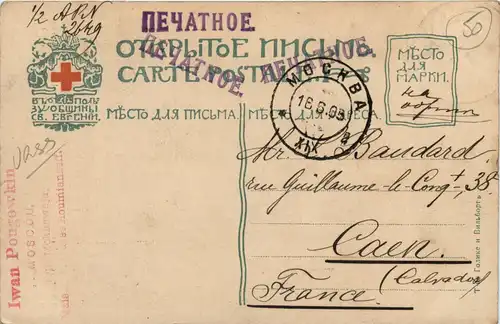 1/2
ПЕЧАТНОЕ.
50
ОТКРЫТОЕ ПИСЬМО.
CARTE POSTALE
ПЕЧАТНОЕ. ПЕЧАТНОЕ.
МѢСТО
ДЛЯ
МАРКИ.
на
ВЪ ПОЛЬ
ЗУ ОБЩИНЫ
СВ. ЕВГЕНІИ.
МѢСТО ДЛЯ ПИСЬМА.
МѢСТО ДЛЯ АДРЕСА.
МОСКВА
16.6.05
XIX
Mr. Baudard
rue Guillaume-le-Conqt, 38
Caen.
(Calvados)
France.
Iwan Pougowkin
MOSCOU.
Т-во Голике и Вильборгъ